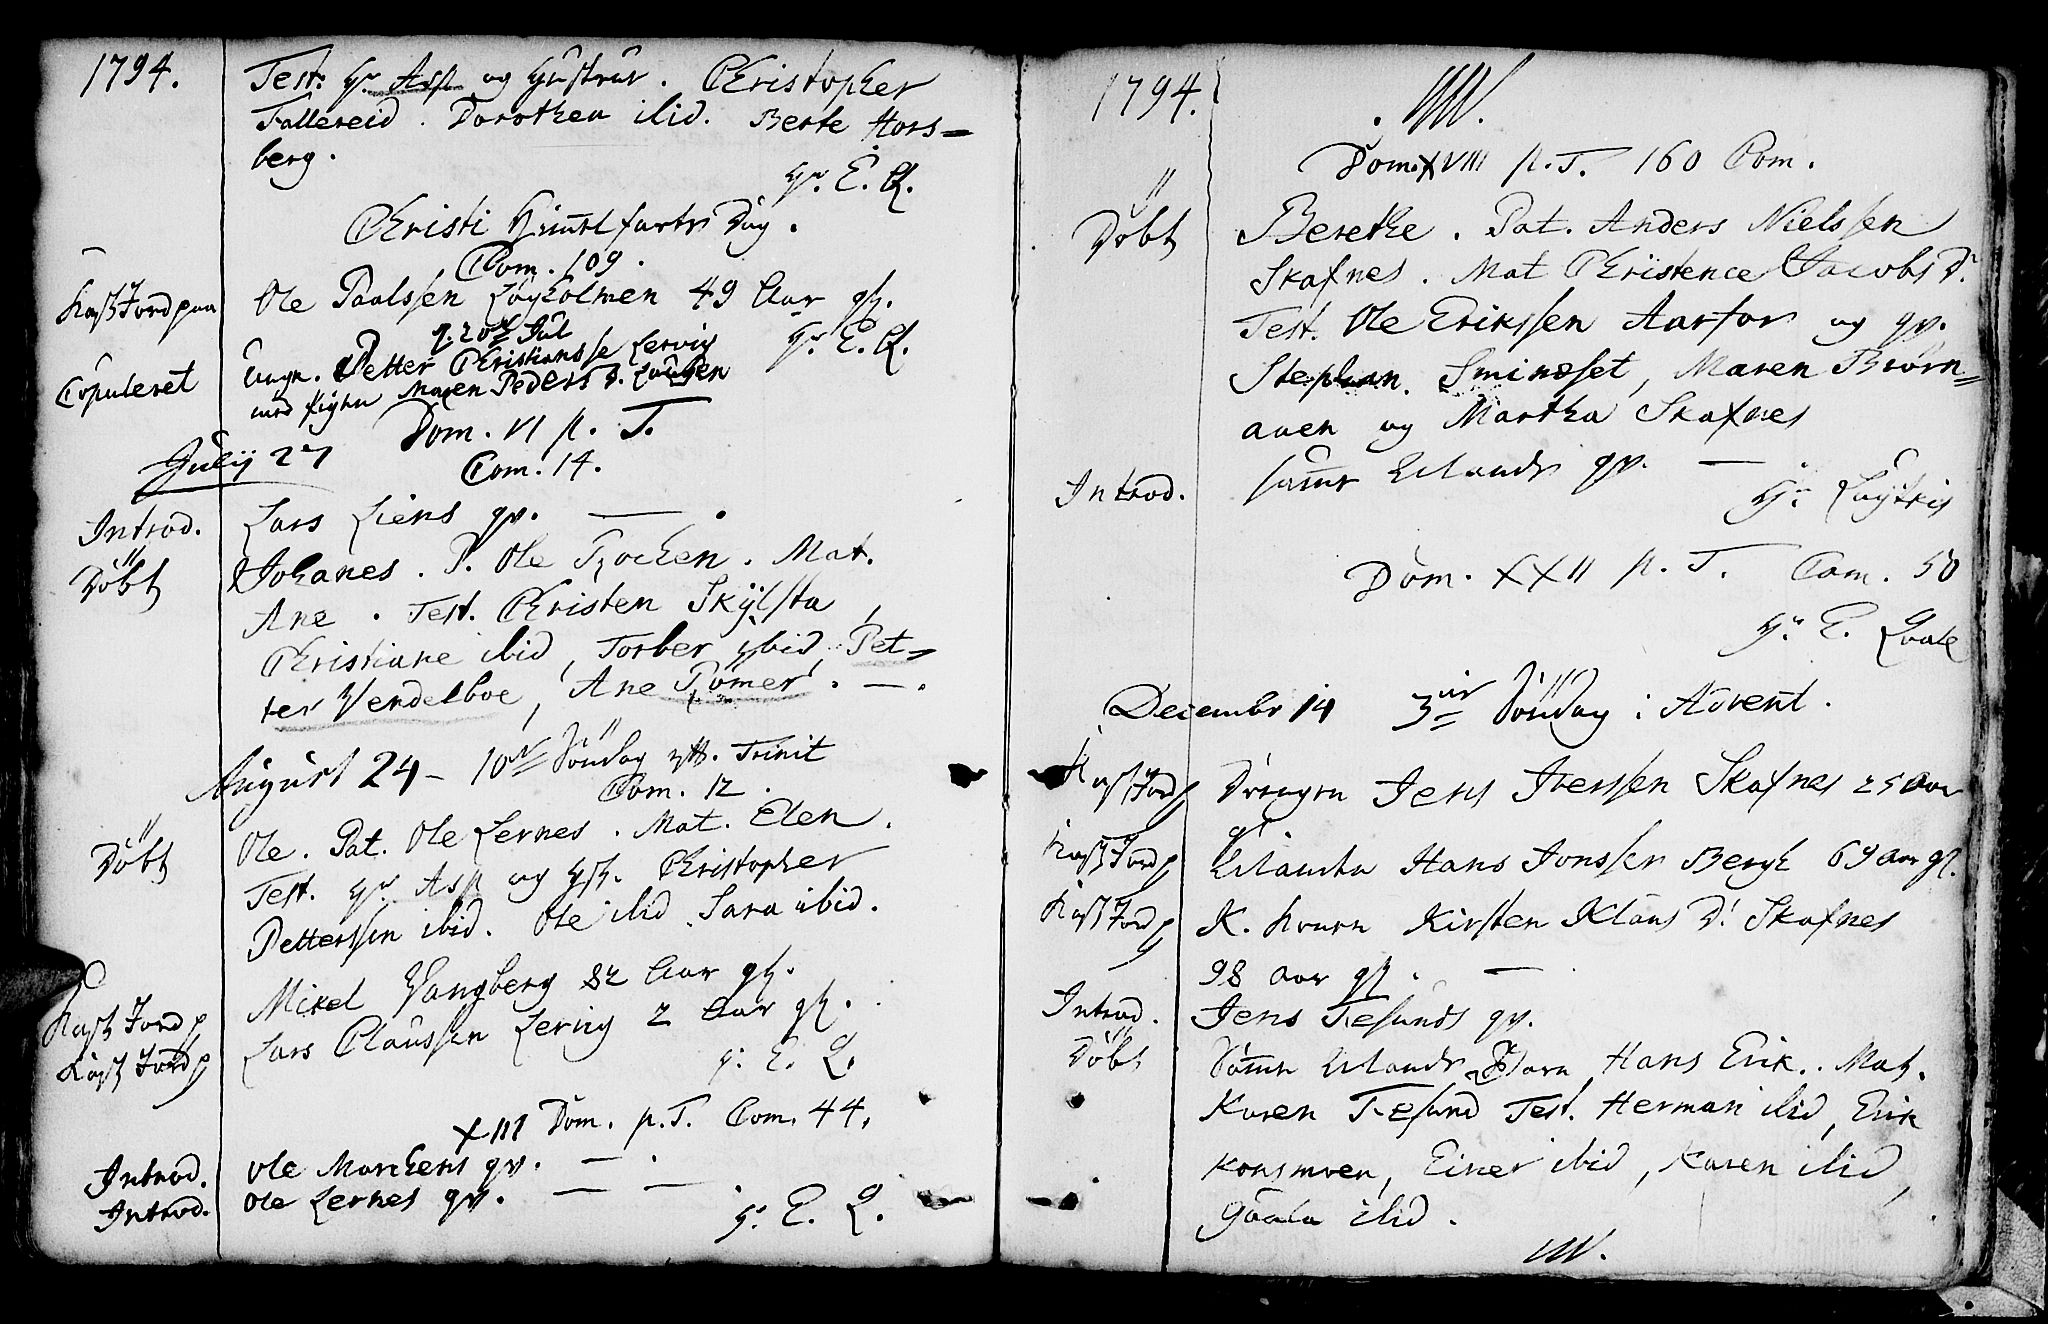 1794.
Test. Hr. Asp og Hustrue. Christopher
Fallereid. Dorothea ibid. Berte Hors=
berg.
Hr. E. Q.
Christi Himmelfarts Dag.
Com. 109.
Kast Jord paa Ole Paalssen Løgholmen 49 Aar gl.
d. 20de Jul Hr. E. Q.
Copuleret Ungk. Petter Christianss Lervig
med Pigen Maren Peders D.
Dom. VI p. T.
Julij 27
Com. 14.
Introd. Lars Liens qv. — .
Döbt Johanes. P. Ole Mat.
Ane. Test. Christen Skÿlsta,
Christiane ibid, Torber ibid, Pet=
ter Vendelboe, Ane Römer. — .
August 24 - 10de Söndag eft. Trinit
Com. 12.
Döbt Ole. Pat. Ole Lernes. Mat. Elen.
Test. Hr. Asp og Hst. Christopher
Petterssen ibid. Ole ibid. Sara ibid.
Kast Jord p Mikel Vangberg 82 Aar gl.
Kast Jord p Lars Claussen Lervig 2 Aar gl.
H. E. Q.
XIII Dom. p. T. Com. 44.
Introd. Ole Markens qv. — .
Introd. Ole Lernes qv. — —
H. E. Q.
1794.
Dom. XVIII p. T. 160 Com.
Döbt Berethe. Pat. Anders Nielssen
Skafnes. Mat Christence Jacobs D.
Test. Ole Erikssen Aarfor og qv.
Stephan. Sminæset, Maren Biörn=
auen og Martha Skafnes
Introd. samme Ermands qv. —
Hr.
Dom. XXII p. T. Com. 50
Hr. E. Qvale
Decembr 14 3die Söndag i Advent.
Kast Jord p Drengen Jens Iverssen Skafnes 25 Aar
gl.
Kast Jord p Hans Jonssen Bergh 69 aar gl.
Kast Jord p K. Konen Kirsten Klaus D. Skafnes
98 aar gl. —
Introd. Jens Tiesunds qv.
Döbt Samme Barn Hans Erik. Mat.
Karen Tiesund Test. Herman ibid, Erik
Konsmoen, Einer ibid, Karen ibid,
ibid.